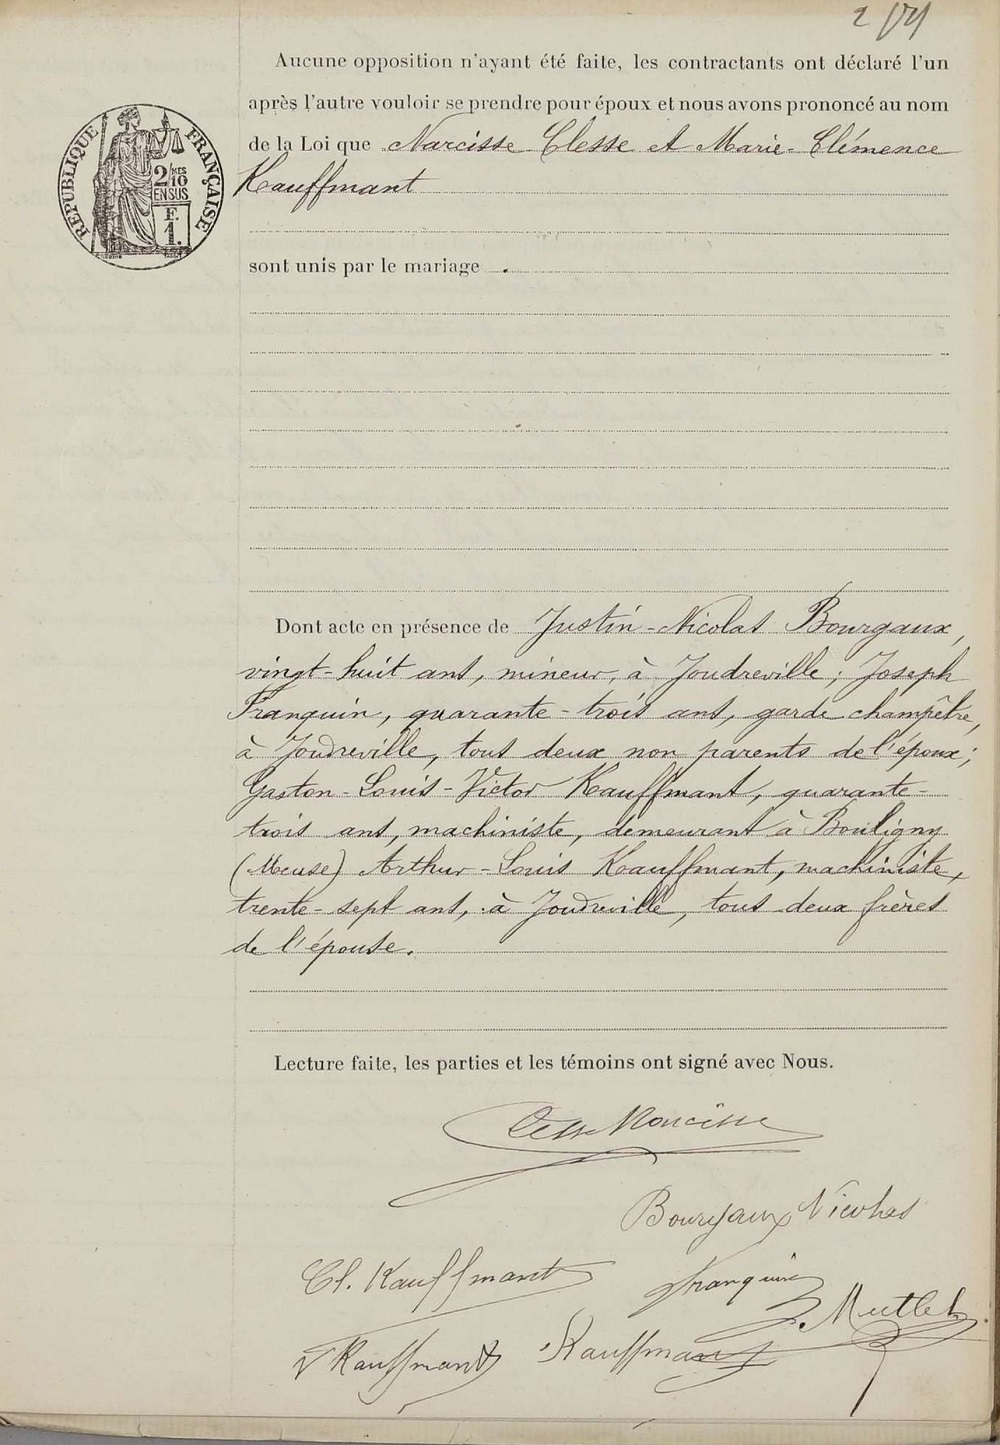 Aucune opposition n'ayant été faite, les contractants ont déclaré l'un
après l'autre vouloir se prendre pour époux et nous avons prononcé au nom
de la Loi que Narcisse Clesse et Marie-Clémence
Kauffmant
RÉPUBLIQUE FRANÇAISE
2/10MES
EN SUS
F.
1.
sont unis par le mariage .
Dont acte en présence de Justin-Nicolas Bourgaux,
vingt-huit ans, mineur, à Joudreville; Joseph
Franquin, quarante-trois ans, garde champêtre,
à Joudreville, tous deux non parents de l'époux;
Gaston-Louis-Victor Kauffmant, quarante-
trois ans, machiniste, demeurant à Bouligny
(Meuse) Arthur-Louis Kauffmant, machiniste,
trente-sept ans, à Joudreville, tous deux frères
de l'épouse.
Lecture faite, les parties et les témoins ont signé avec Nous.
Clesse Narcisse
Bourgaux Nicolas
Cl. Kauffmant
Franquin
Kauffmant
Kauffmant